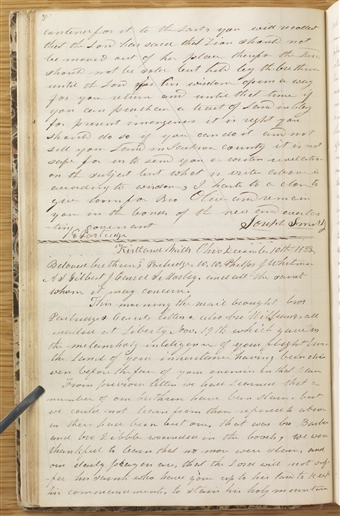 contend for it to the last, you will recollect
that the Lord has said that Zion should not
be moved out of her place therefore the land
should not be sold but held by the brethren
until the Lord in his wisdom opens a way
for your return and until that time if
you can purchase a tract of land
for present emergences it is right you
should do so if you can do it and not
sell your Land in Jackson county it is not
safe for us to send you a written revelation
on the subject but what is writen above is
according to wisdom, I haste to a close to
give room for Bro Oliver and remain
you in the bonds of the new and everlas
ting Covenant Joseph Smith
Partridge
Kirtland Mills Ohio December 10th 1833
Beloved brethren E Partridge, W. W. Phelps J Whitmer
A S Gilbert J Correl I Morley and all the saint
whom it may concern
This morning the mail brought bro
Partridge Corrils letters & also bro W Phelps all
mailed at Liberty Nov. 19th which gave us
the melancholy inteligence of your flight from
the land of your inheritance having been driv
ven before the face of your enemies in that place
From previous letters we have learned that a
number of our brethren have been slain, but
we could not learn from those referred to above
as there have been but one, that was bro Barber
and bro Dibble wounded in the bowels, we were
thankful to learn that no more were slain, and
our daily prayers are, that the Lord will not suf
fer his saints who have gone up to his land to keep
his commandments, to stain his holy mountain